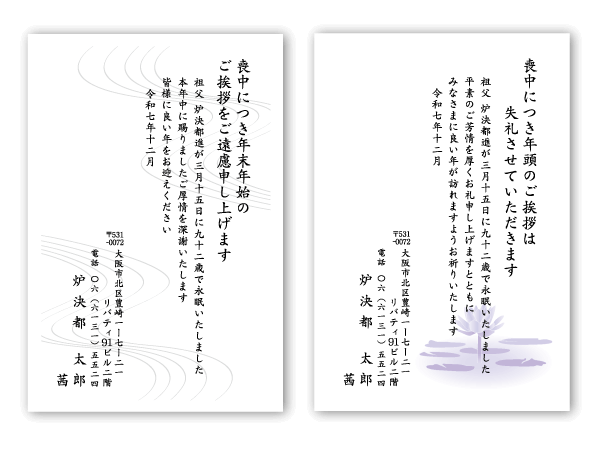 喪中につき年末年始の
ご挨拶をご遠慮申し上げます
祖父 炉決都進が三月十五日に九十二歳で永眠いたしました
本年中に賜りましたご厚情を深謝いたします
皆様に良い年をお迎えください
令和七年十二月
〒531
-0072
大阪市北区豊崎一ー七ー二一
リバティ91ビル二階
電話 〇六(六一三一)五五二四
炉決都 太郎
茜
喪中につき年頭のご挨拶は
失礼させていただきます
祖父 炉決都進が三月十五日に九十二歳で永眠いたしました
平素のご芳情を厚くお礼申し上げますとともに
みなさまに良い年が訪れますようお祈りいたします
令和七年十二月
〒531
-0072
大阪市北区豊崎一ー七ー二一
リバティ91ビル二階
電話 〇六(六一三一)五五二四
炉決都 太郎
茜